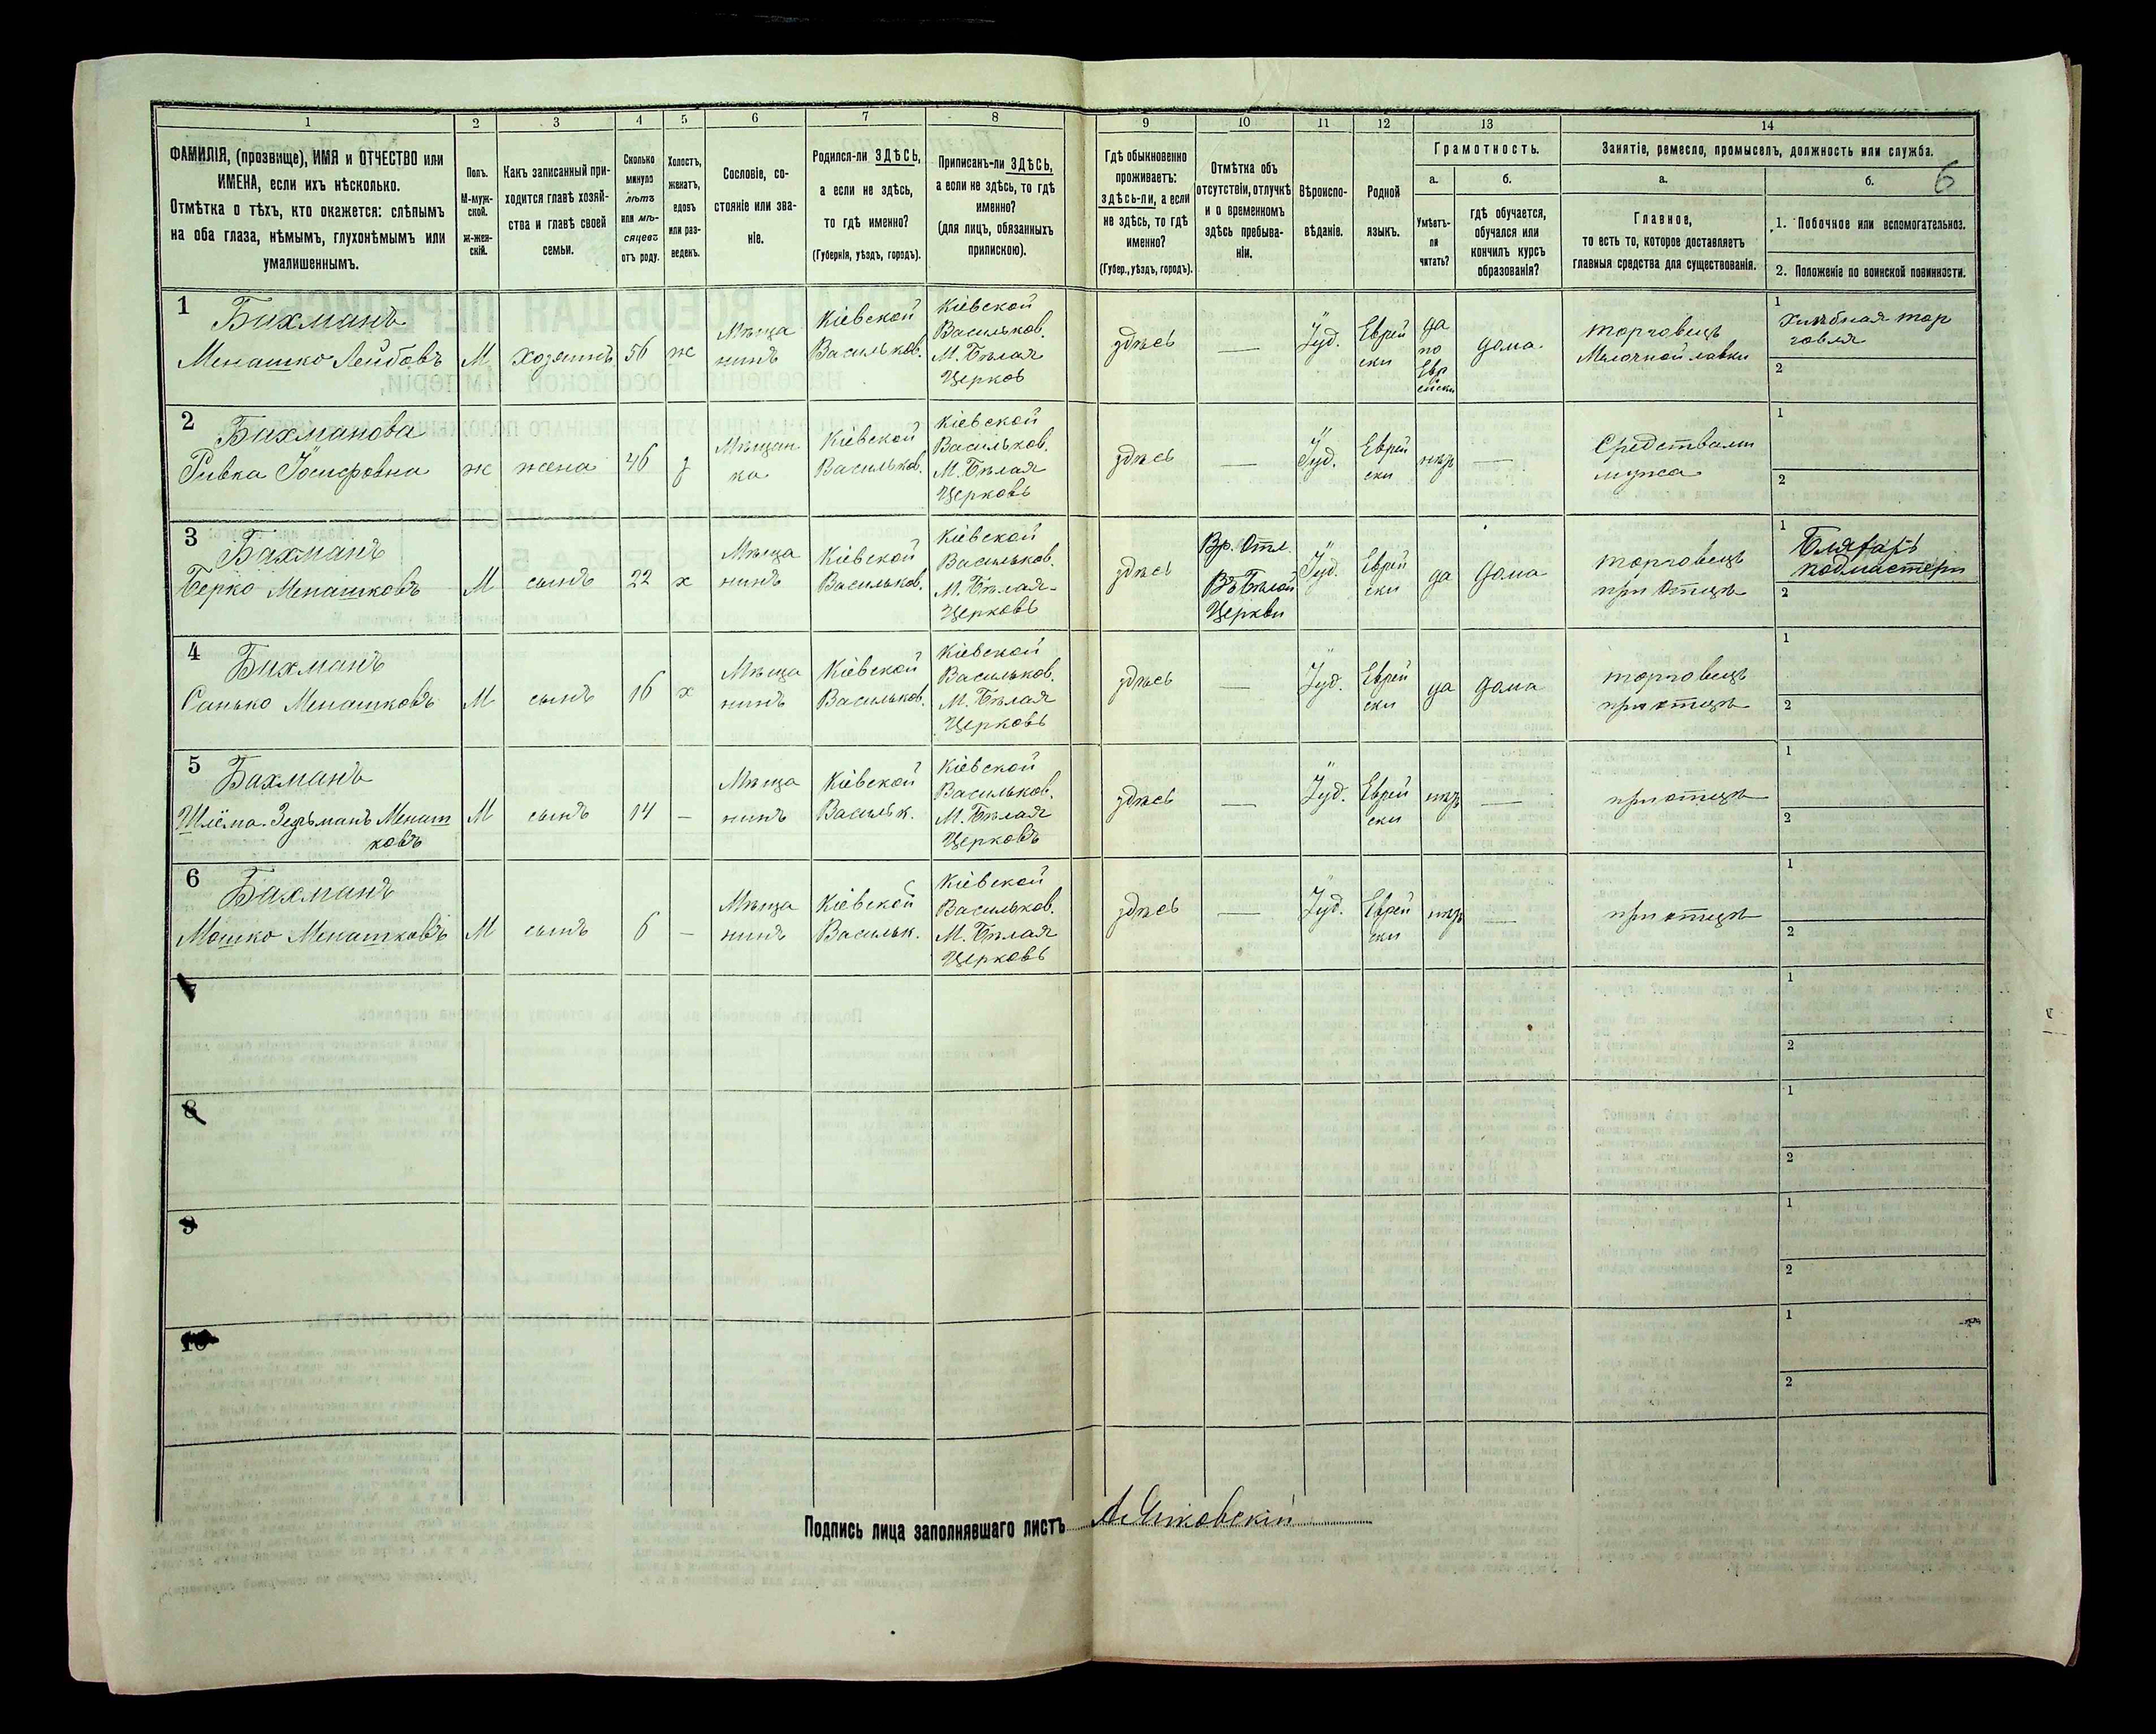 1
2
3
4
5
6
7
8
9
10
11
12
13
14
ФАМИЛІЯ, (прозвище), ИМЯ и ОТЧЕСТВО или
ИМЕНА, если ихъ нѣсколько.
Отмѣтка о тѣхъ, кто окажется: слѣпымъ
на оба глаза, нѣмымъ, глухонѣмымъ или
умалишеннымъ.
Полъ.
М-муж-
ской.
ж-жен-
скій.
Какъ записанный при-
ходится главѣ хозяй-
ства и главѣ своей
семьи.
Сколько
минуло
лѣтъ
или мѣ-
сяцевъ
отъ роду.
Холостъ,
женатъ,
вдовъ
или раз-
веденъ.
Сословіе, со-
стояніе или зва-
ніе.
Родился-ли ЗДѢСЬ,
а если не здѣсь,
то гдѣ именно?
(Губернія, уѣздъ, городъ).
Приписанъ-ли ЗДѢСЬ,
а если не здѣсь, то гдѣ
именно?
(для лицъ, обязанныхъ
припискою).
Гдѣ обыкновенно
проживаетъ:
здѣсь-ли, а если
не здѣсь, то гдѣ
именно?
(Губер., уѣздъ, городъ).
Отмѣтка объ
отсутствіи, отлучкѣ
и о временномъ
здѣсь пребыва-
ніи.
Вѣроиспо-
вѣданіе.
Родной
языкъ.
Грамотность.
а.
Умѣетъ-
ли
читать?
б.
гдѣ обучается,
обучался или
кончилъ курсъ
образованія?
Занятіе, ремесло, промыселъ, должность или служба.
6
а.
Главное,
то есть то, которое доставляетъ
главныя средства для существованія.
б.
1. Побочное или вспомогательное.
2. Положеніе по воинской повинности.
1
Бихманъ
Менашко Лейбовъ
М
хозяинъ
56
ж
Мѣща
нинъ
Кіевской
Васильков.
Кіевской
Васильков.
М. Бѣлая
Церковь
здѣсь
—
Іуд.
Еврей
ски
да
по
Евр
ейски
дома
торговецъ
Мелочной лавки
1
Хлѣбная тор
говля
2
2
Бихманова
Ривка Іосифовна
ж
жена
46
з
Мѣщан
ка
Кіевской
Васильков.
Кіевской
Васильков.
М. Бѣлая
Церковь
здѣсь
—
Іуд.
Еврей
ски
нѣт
—
Средствами
мужа
1
2
3
Бихманъ
Берко Менашковъ
М
сынъ
22
х
Мѣща
нинъ
Кіевской
Васильков.
Кіевской
Васильков.
М. Бѣлая
Церковь
здѣсь
Вр. Отл.
Въ Бѣлой
Церкви
Іуд.
Еврей
ски
да
дома
торговецъ
при Отцѣ
1
Бляхарь
подмастерь
2
4
Бихманъ
Санько Менашковъ
М
сынъ
16
х
Мѣща
нинъ
Кіевской
Васильков.
Кіевской
Васильков.
М. Бѣлая
Церковь
здѣсь
—
Іуд.
Еврей
ски
да
дома
торговецъ
при отцѣ
1
2
5
Бихманъ
Шлёма-Зельманъ Менаш
ковъ
М
сынъ
14
—
Мѣща
нинъ
Кіевской
Васильк.
Кіевской
Васильков.
М. Бѣлая
Церковь
здѣсь
—
Іуд.
Еврей
ски
нѣт
—
при отцѣ
1
2
6
Бихманъ
Мошко Менашковъ
М
сынъ
6
—
Мѣща
нинъ
Кіевской
Васильк.
Кіевской
Васильков.
М. Бѣлая
Церковь
здѣсь
—
Іуд.
Еврей
ски
нѣт
—
при отцѣ
1
2
7
1
2
8
1
2
9
1
2
10
1
2
Подпись лица заполнявшаго листъ